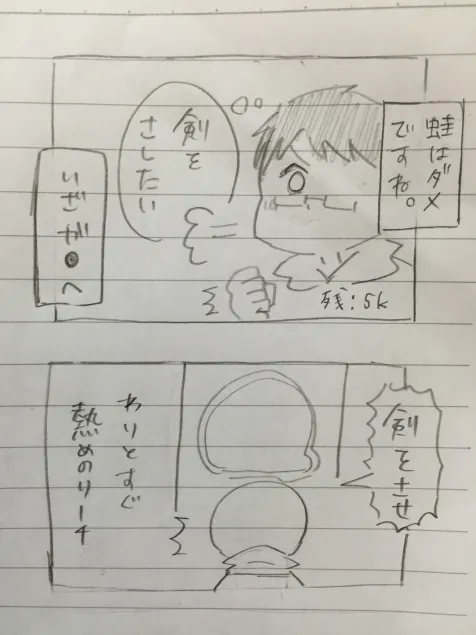 蛙はダメ
ですね。
剣を
さしたい
残:5k
いざギ●へ
剣をさせ
わりとすぐ
熱めのリーチ